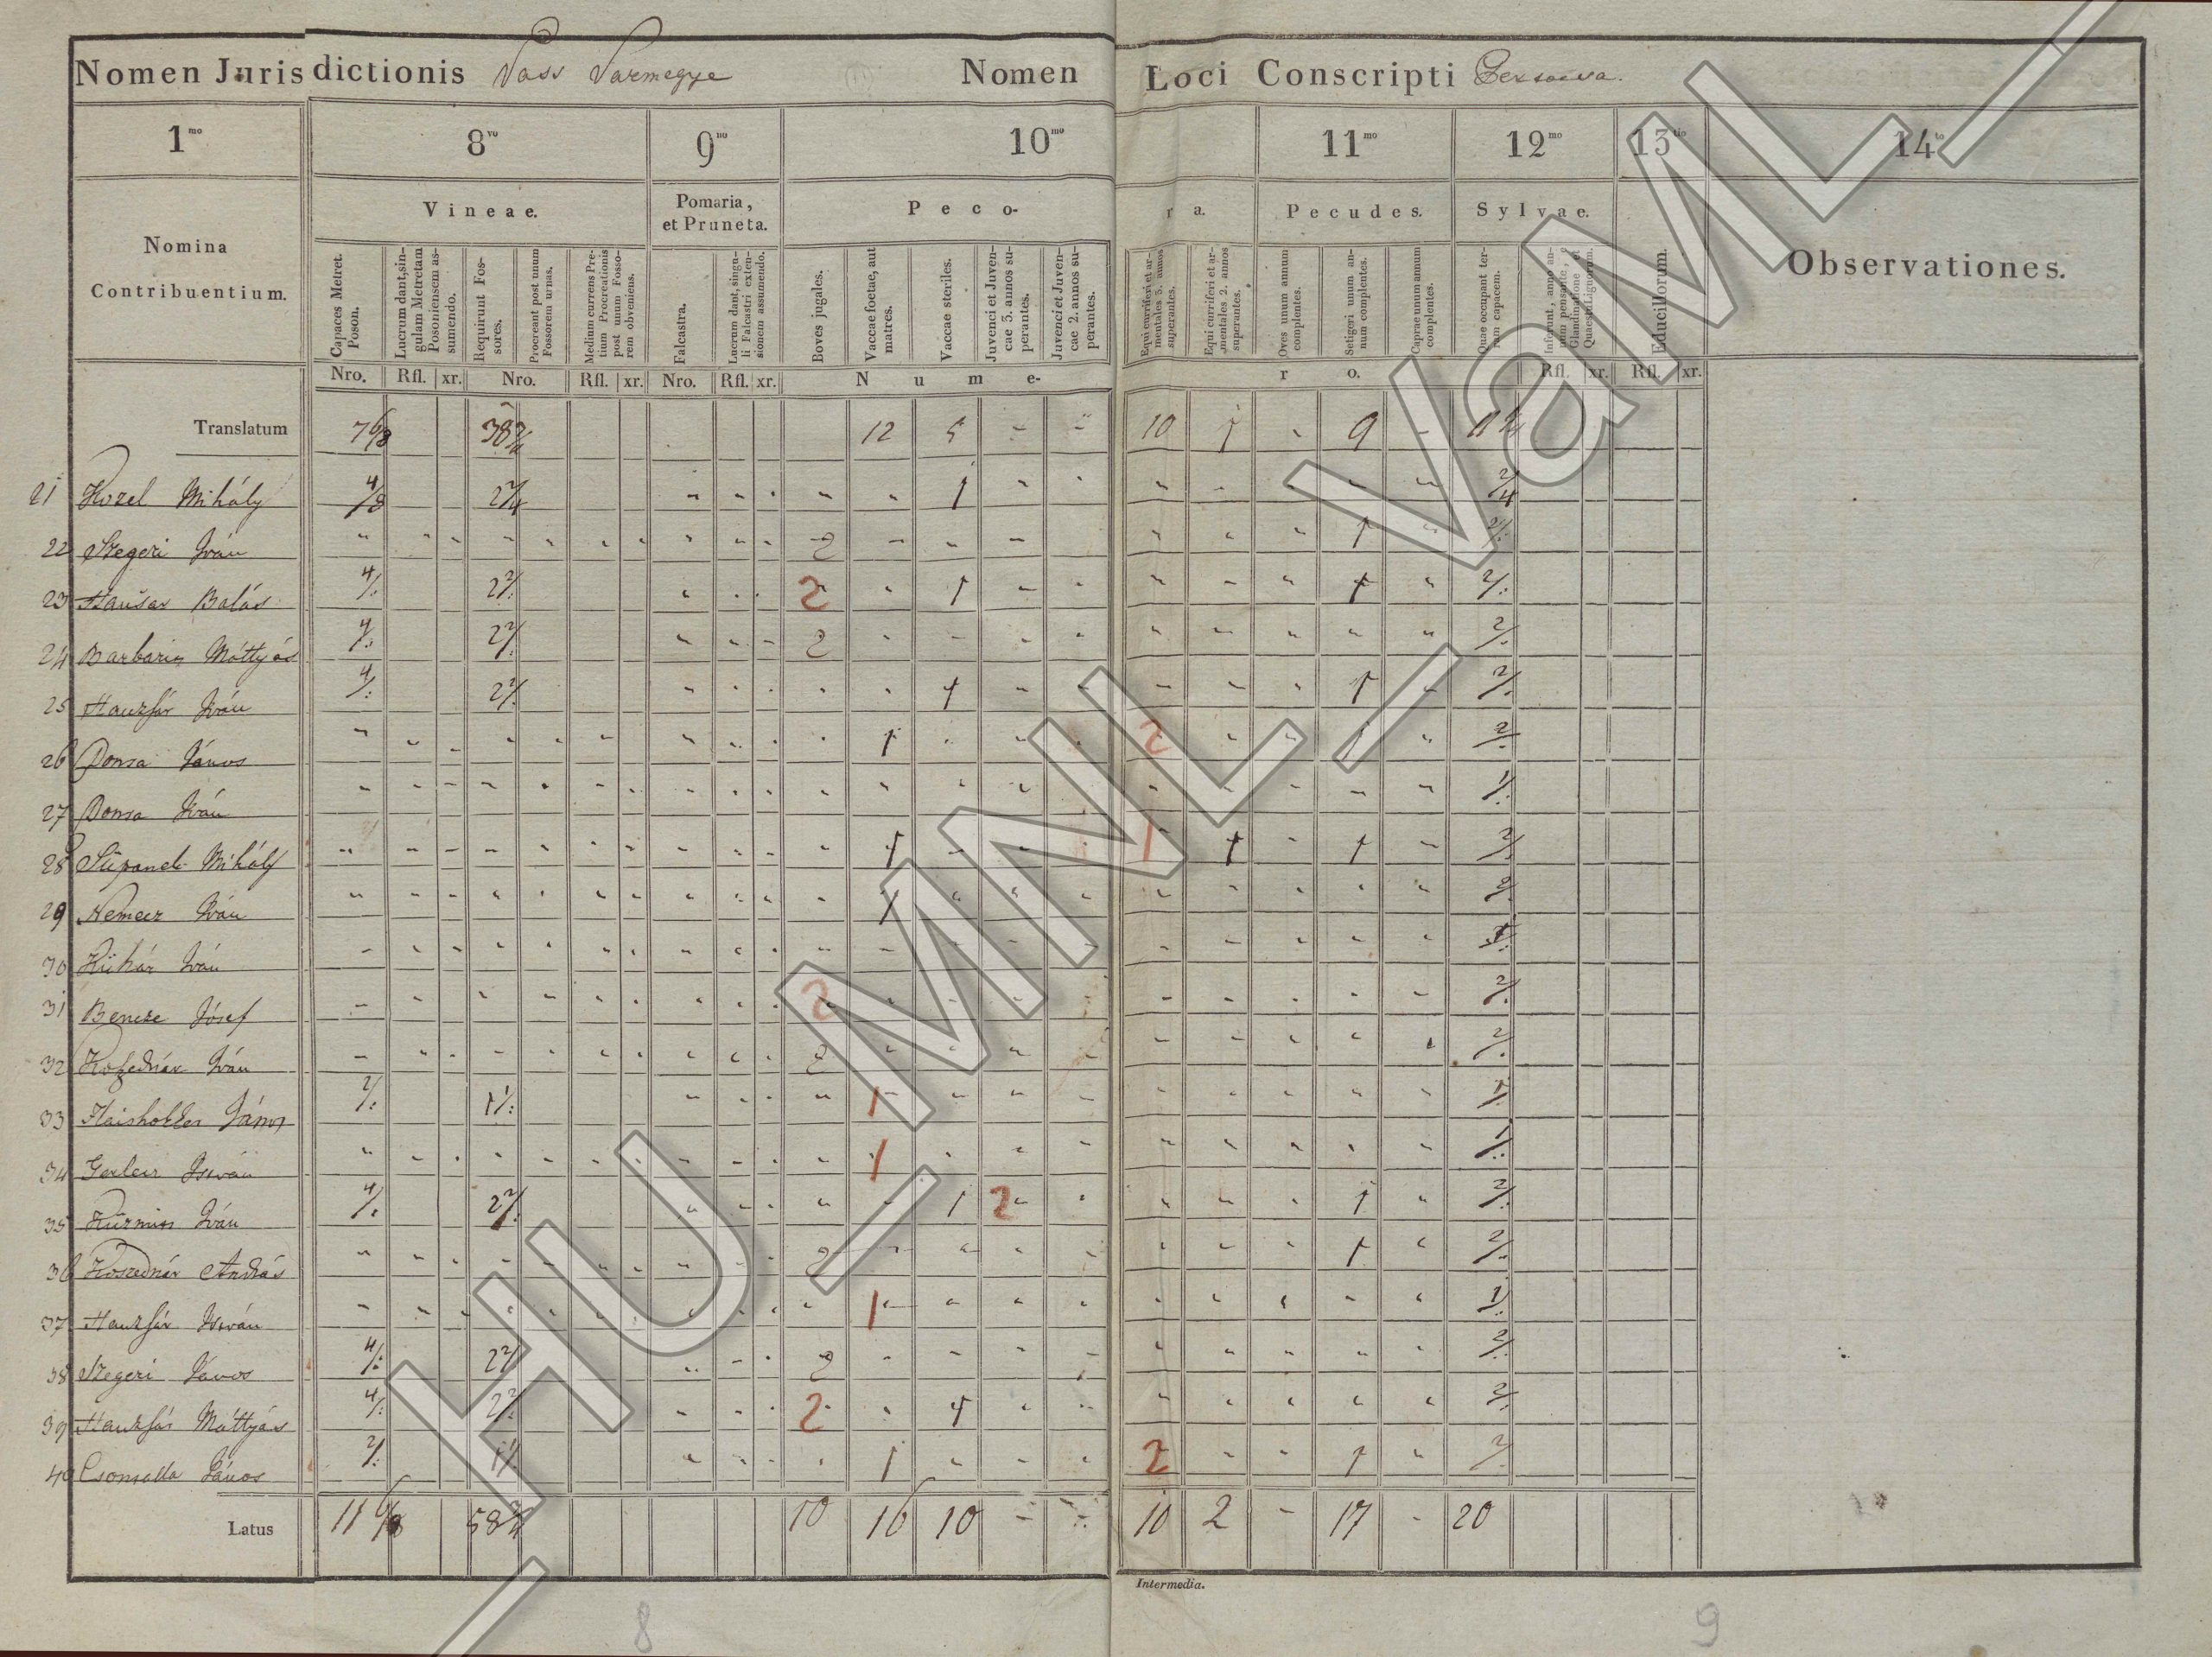 Nomen Jurisdictionis Vass Varmegye Nomen Loci Conscripti
1mo 8vo 9no 10mo 11mo 12mo 13tio 14to
Nomina Contribuentium.
Vineae.
Pomaria, et Pruneta.
Pecora.
Pecudes.
Sylvae.
Observationes.
Capaces Metret. Poson.
Lucrum dant, singulam Metretam Posoniensem assumendo.
Requirunt Fossores.
Procreant post unum Fossorem urnas.
Medium currens Pretium Procreationis post unum Fossorem obveniens.
Falcastra.
Lucrum dant, singuli Falcastri extensionem assumendo.
Boves jugales.
Vaccae foetae, aut matres.
Vaccae steriles.
Juvenci et Juvencae 3. annos superantes.
Juvenci et Juvencae 2. annos superantes.
Equi curriferi et armentales 3. annos superantes.
Equi curriferi et armentales 2. annos superantes.
Oves unum annum complentes.
Setigeri unum annum complentes.
Caprae unum annum complentes.
Quae occupant terram capacem.
Inferunt, anno annum pensante, e Glandinatione et Quaestu Lignorum.
Educillorum.
Nro. Rfl. xr. Nro. Rfl. xr. Nro. Rfl. xr. Nume- ro. Rfl. xr. Rfl. xr.
Translatum 7 6/8 38 3/4 12 5 - - 10 1 - 9 -
21 Kozel Mihály 4/8 2 2/4 1 2/4
22 Szegeri Iván 2 1 2/:
23 Haušar Balás 4/: 2 2/: 2 1 1 2/:
24 Barbarin Máttyás 4/: 2 2/: 2 2/:
25 Hauzsár Iván 4/: 2 2/: 1 1 2/:
26 Donsa János 1 2 1 2/:
27 Donsa Iván 1/:
28 Mihály 1 1 1 1 2/:
29 Nemecz Iván 1 2/:
30 Kühár Iván 1/:
31 Bencze Jósef 2 2/:
32 Iván 2 2/:
33 János 2/: 1 1/: 1 1/:
34 István 1 1/:
35 Küzmin Iván 4/: 2 2/: 1 2 1 2/:
36 Koszednár András 2 1 2/:
37 Hauzsár István 1 1/:
38 Szegeri János 4/: 2 2/: 2 2/:
39 Hauzsár Máttyás 4/: 2 2/: 2 1 2/:
40 János 2/: 1 1/: 1 2 1 2/:
Latus 11 6/8 58 3/4 10 16 10 - - 10 2 - 17 - 20
Intermedia.
8 9
HU_MNL_VaML_